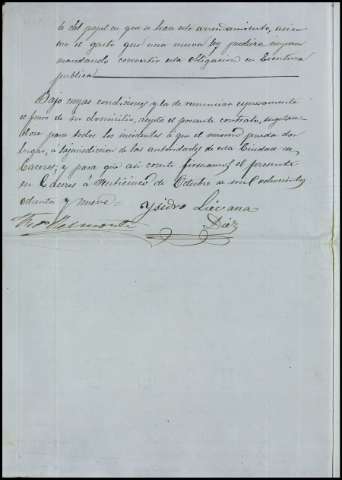 to del papel en que se hace este arrendamiento, asi co-
mo el gasto que una nueva ley pudiera
mandando convertir esta obligacion en Escritura
publica.
Bajo cuyas condiciones y la de renunciar espresamente
el fuero de su domicilio, acepto el presente contrato,
dose para todos los incidentes a que el mismo pueda dar
lugar, a la jurisdiccion de las autoridades de esta Ciudad de
Caceres, y para que asi conste firmamos el presente
en Cáceres á veinticinco de Octubre de mil ochocientos
ochenta y nueve.
Ysidro Liévana
Diez